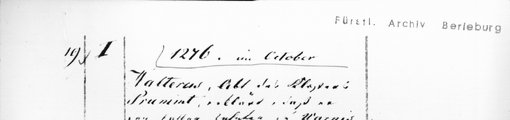 Fürstl. Archiv Berleburg
19 I
1276. im October
Walterus, Abt des Klosters
Prummt, erklärt, daß er
von